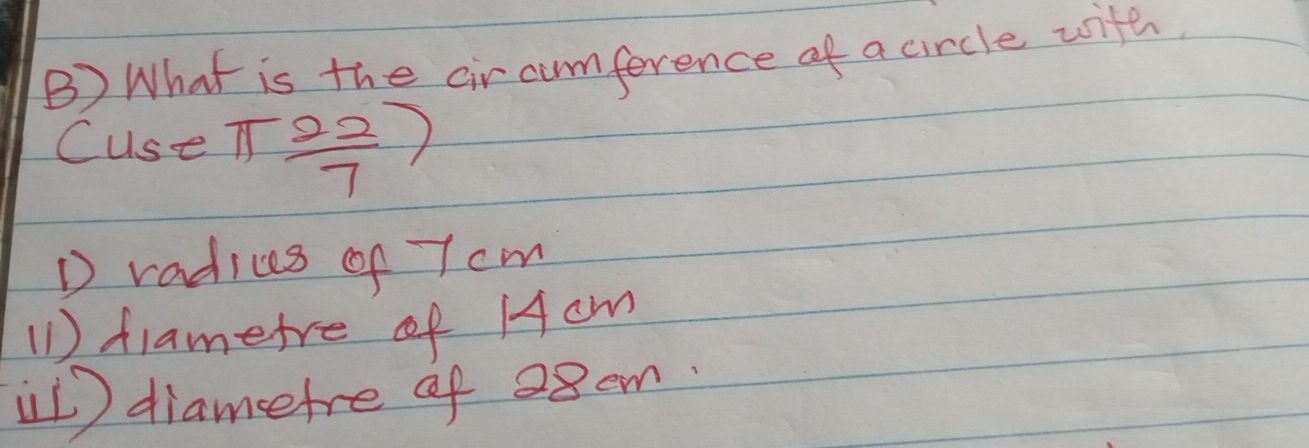 B) What is the circumference of a circle with
(use π 22/7)
I) radius of 7cm
II) diametre of 14cm
iii) diametre of 28cm.